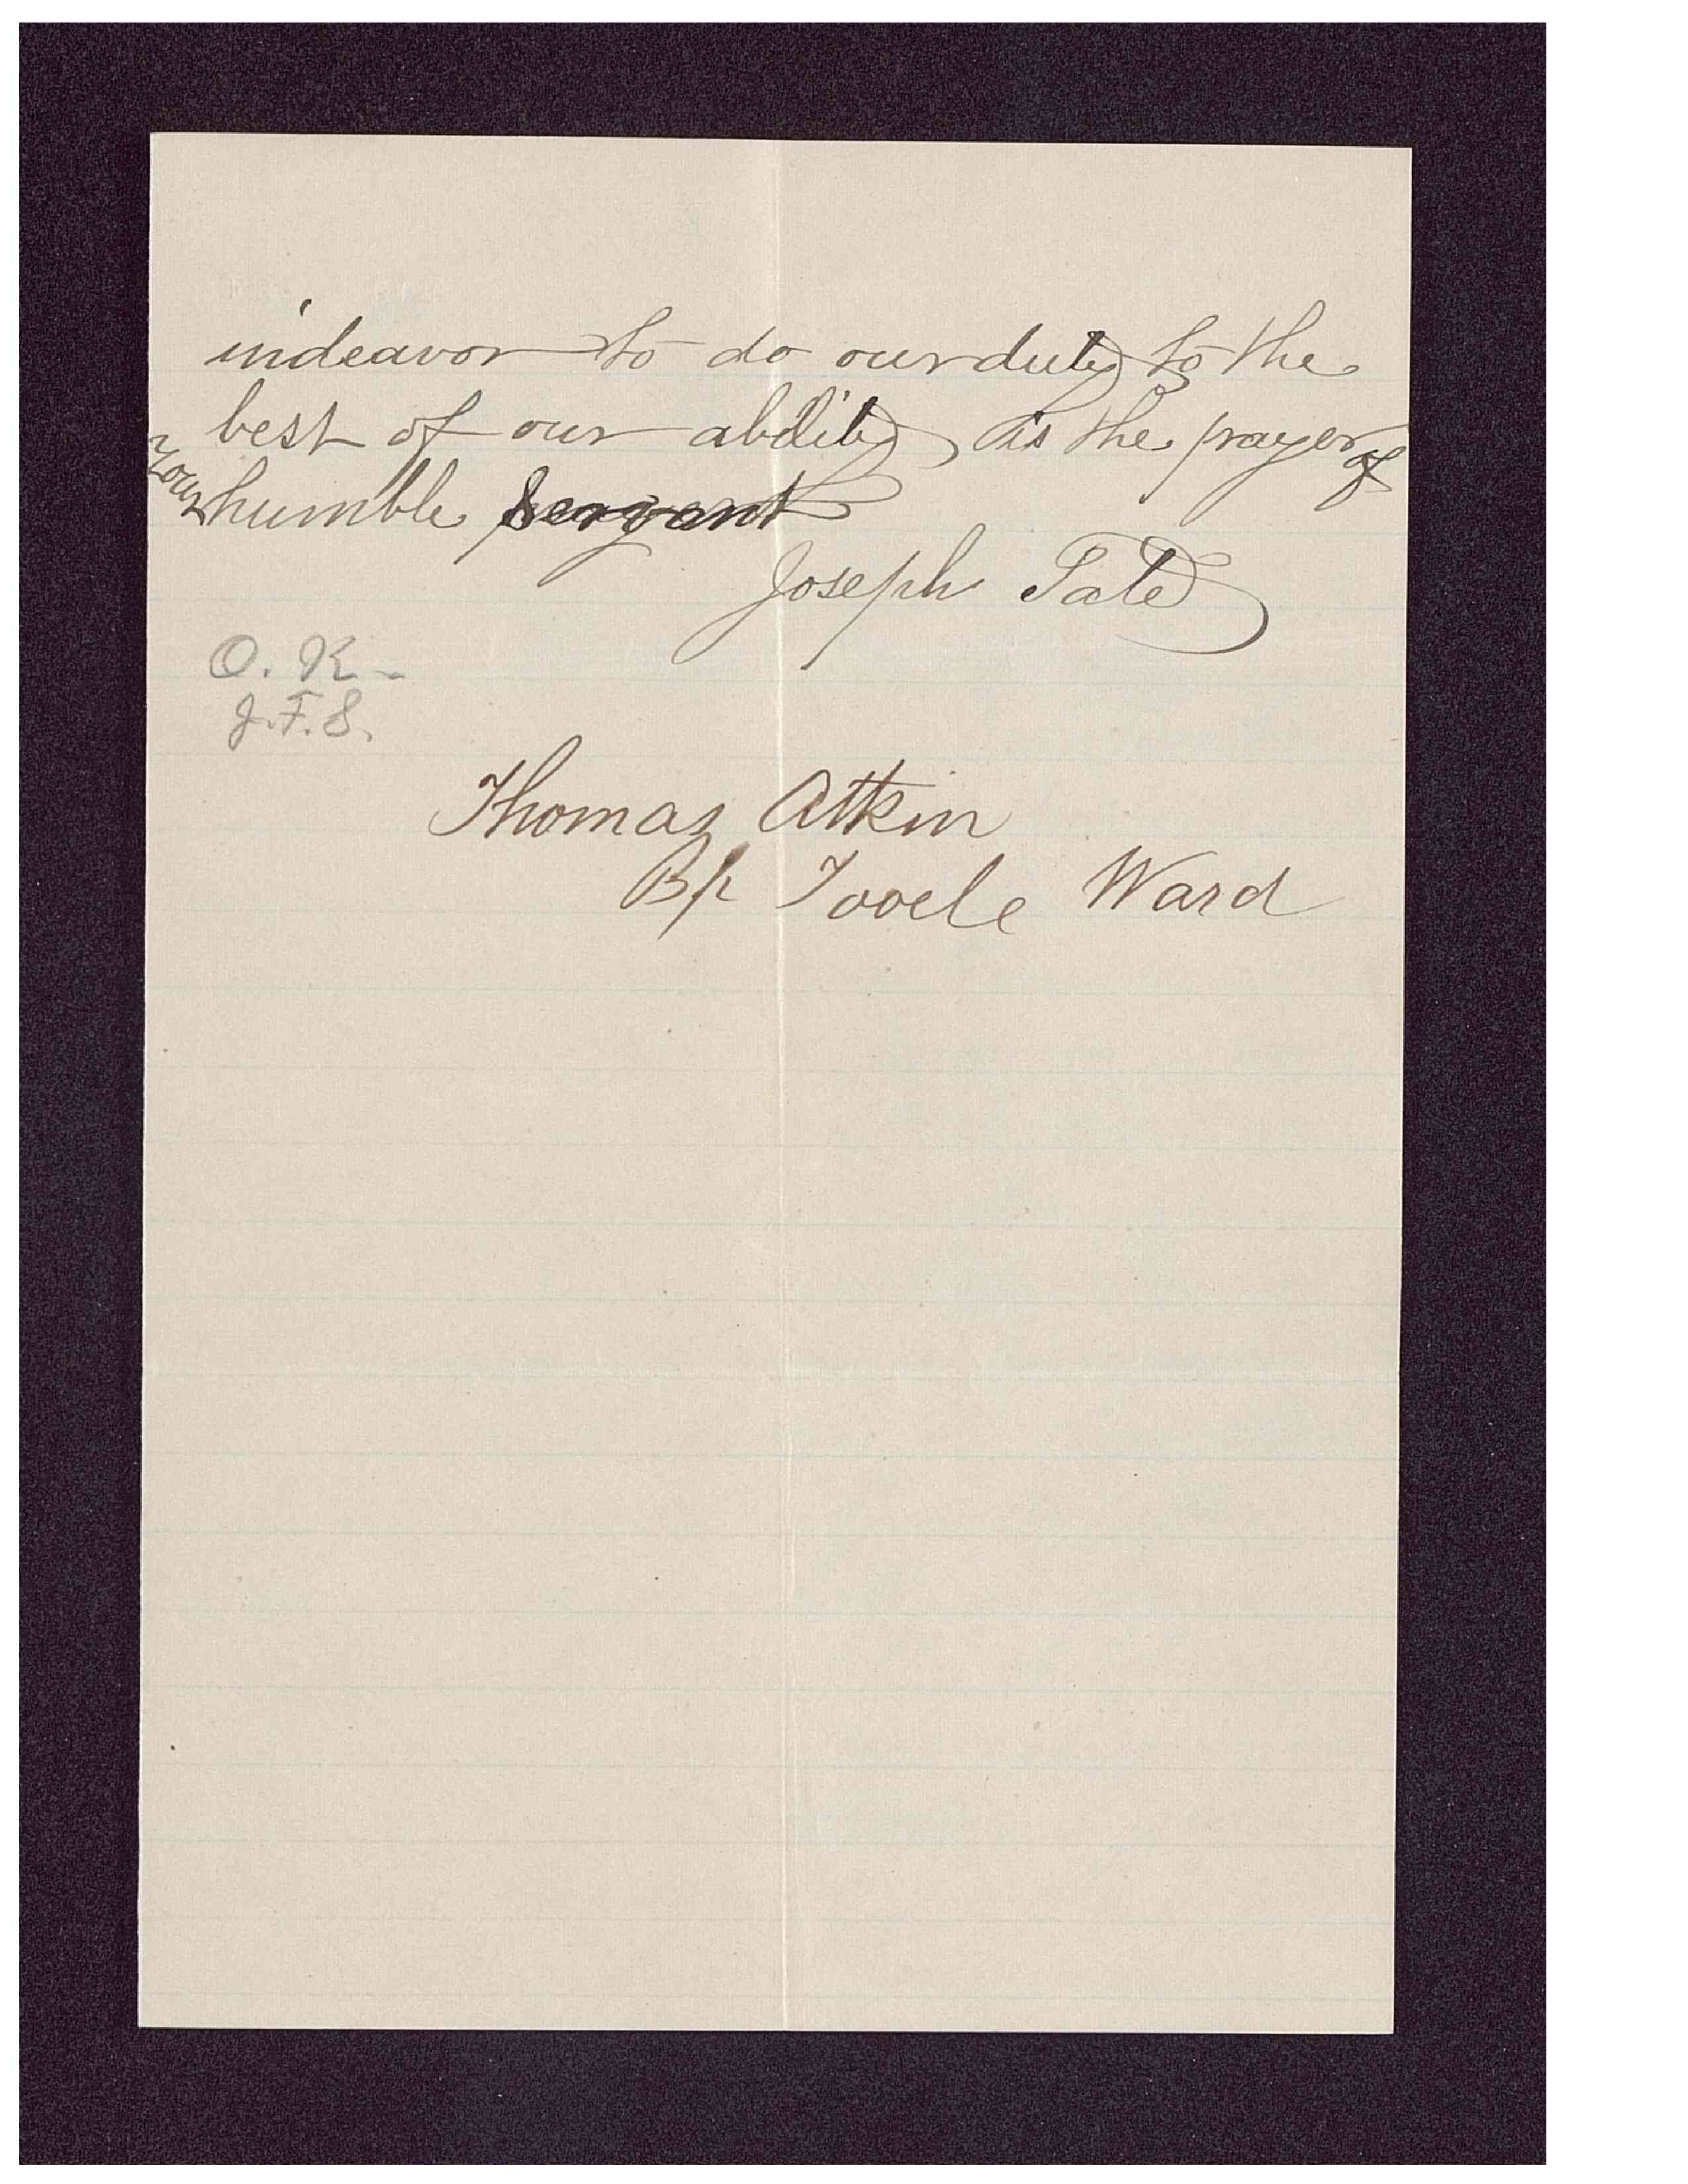 indeavor to do our duty to the
best of our ability is the prayer of
your humble Servant
Joseph Tate
O. K-
J. F. S.
Thomas Atkin
Bp Tooele Ward